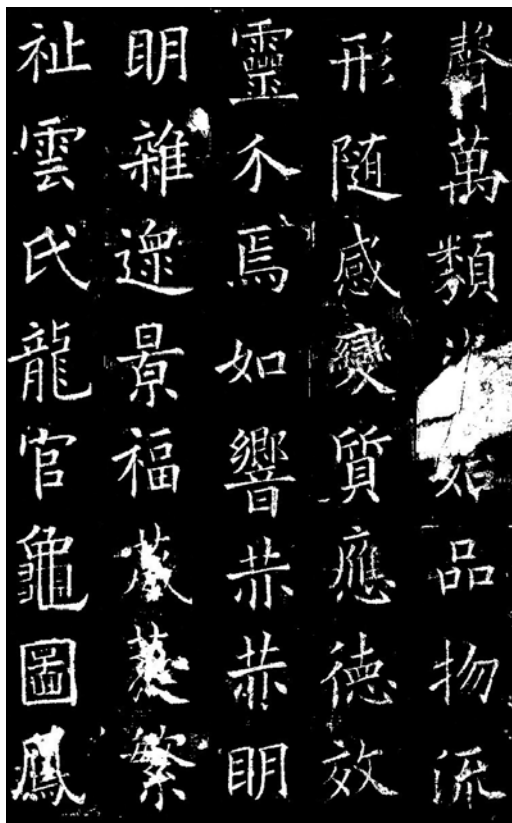 聲萬類始品物流
形隨感變質應德效
靈介焉如響赫赫明
明雜遝景福葳蕤繁
祉雲氏龍官龜圖鳳